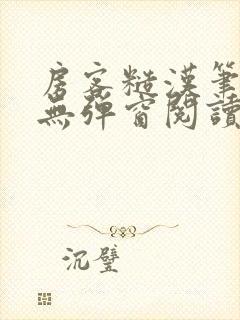 房客糙漢筆
無彈窗閱讀
沉璧